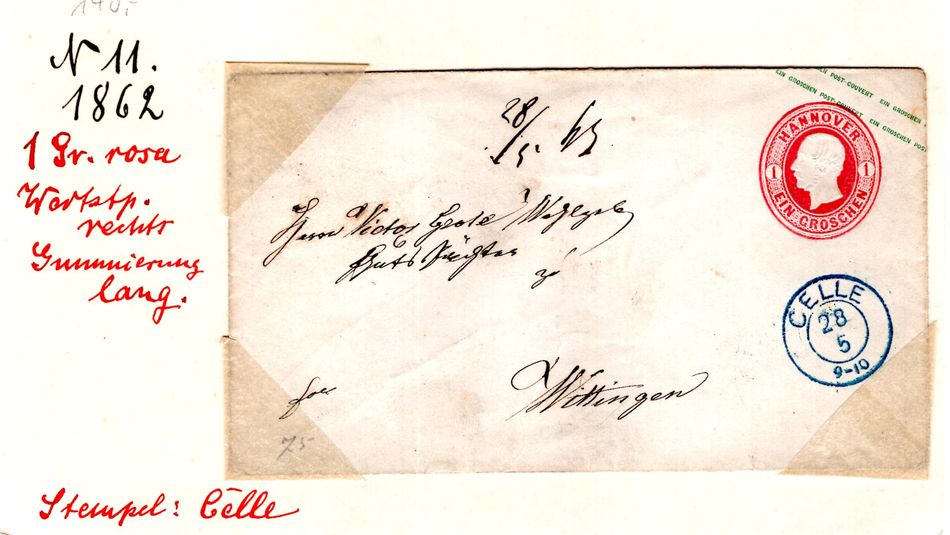 140.-
N 11.
1862
1 Gr. rosa
Wertstp.
rechts
Gummierung
lang.
Stempel: Celle
EIN GROSCHEN POST-COUVERT EIN GROSCHEN
POST-COUVERT EIN GROSCHEN POST
HANNOVER
1 1
EIN GROSCHEN
28/5
Herrn Victor
CELLE
28
5
9-10
Wittingen
75